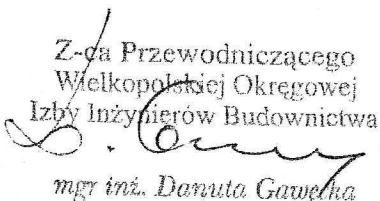 Z-ca Przewodniczącego
Wielkopolskiej Okręgowej
Izby Inżynierów Budownictwa
mgr inż. Danuta Gawęcka